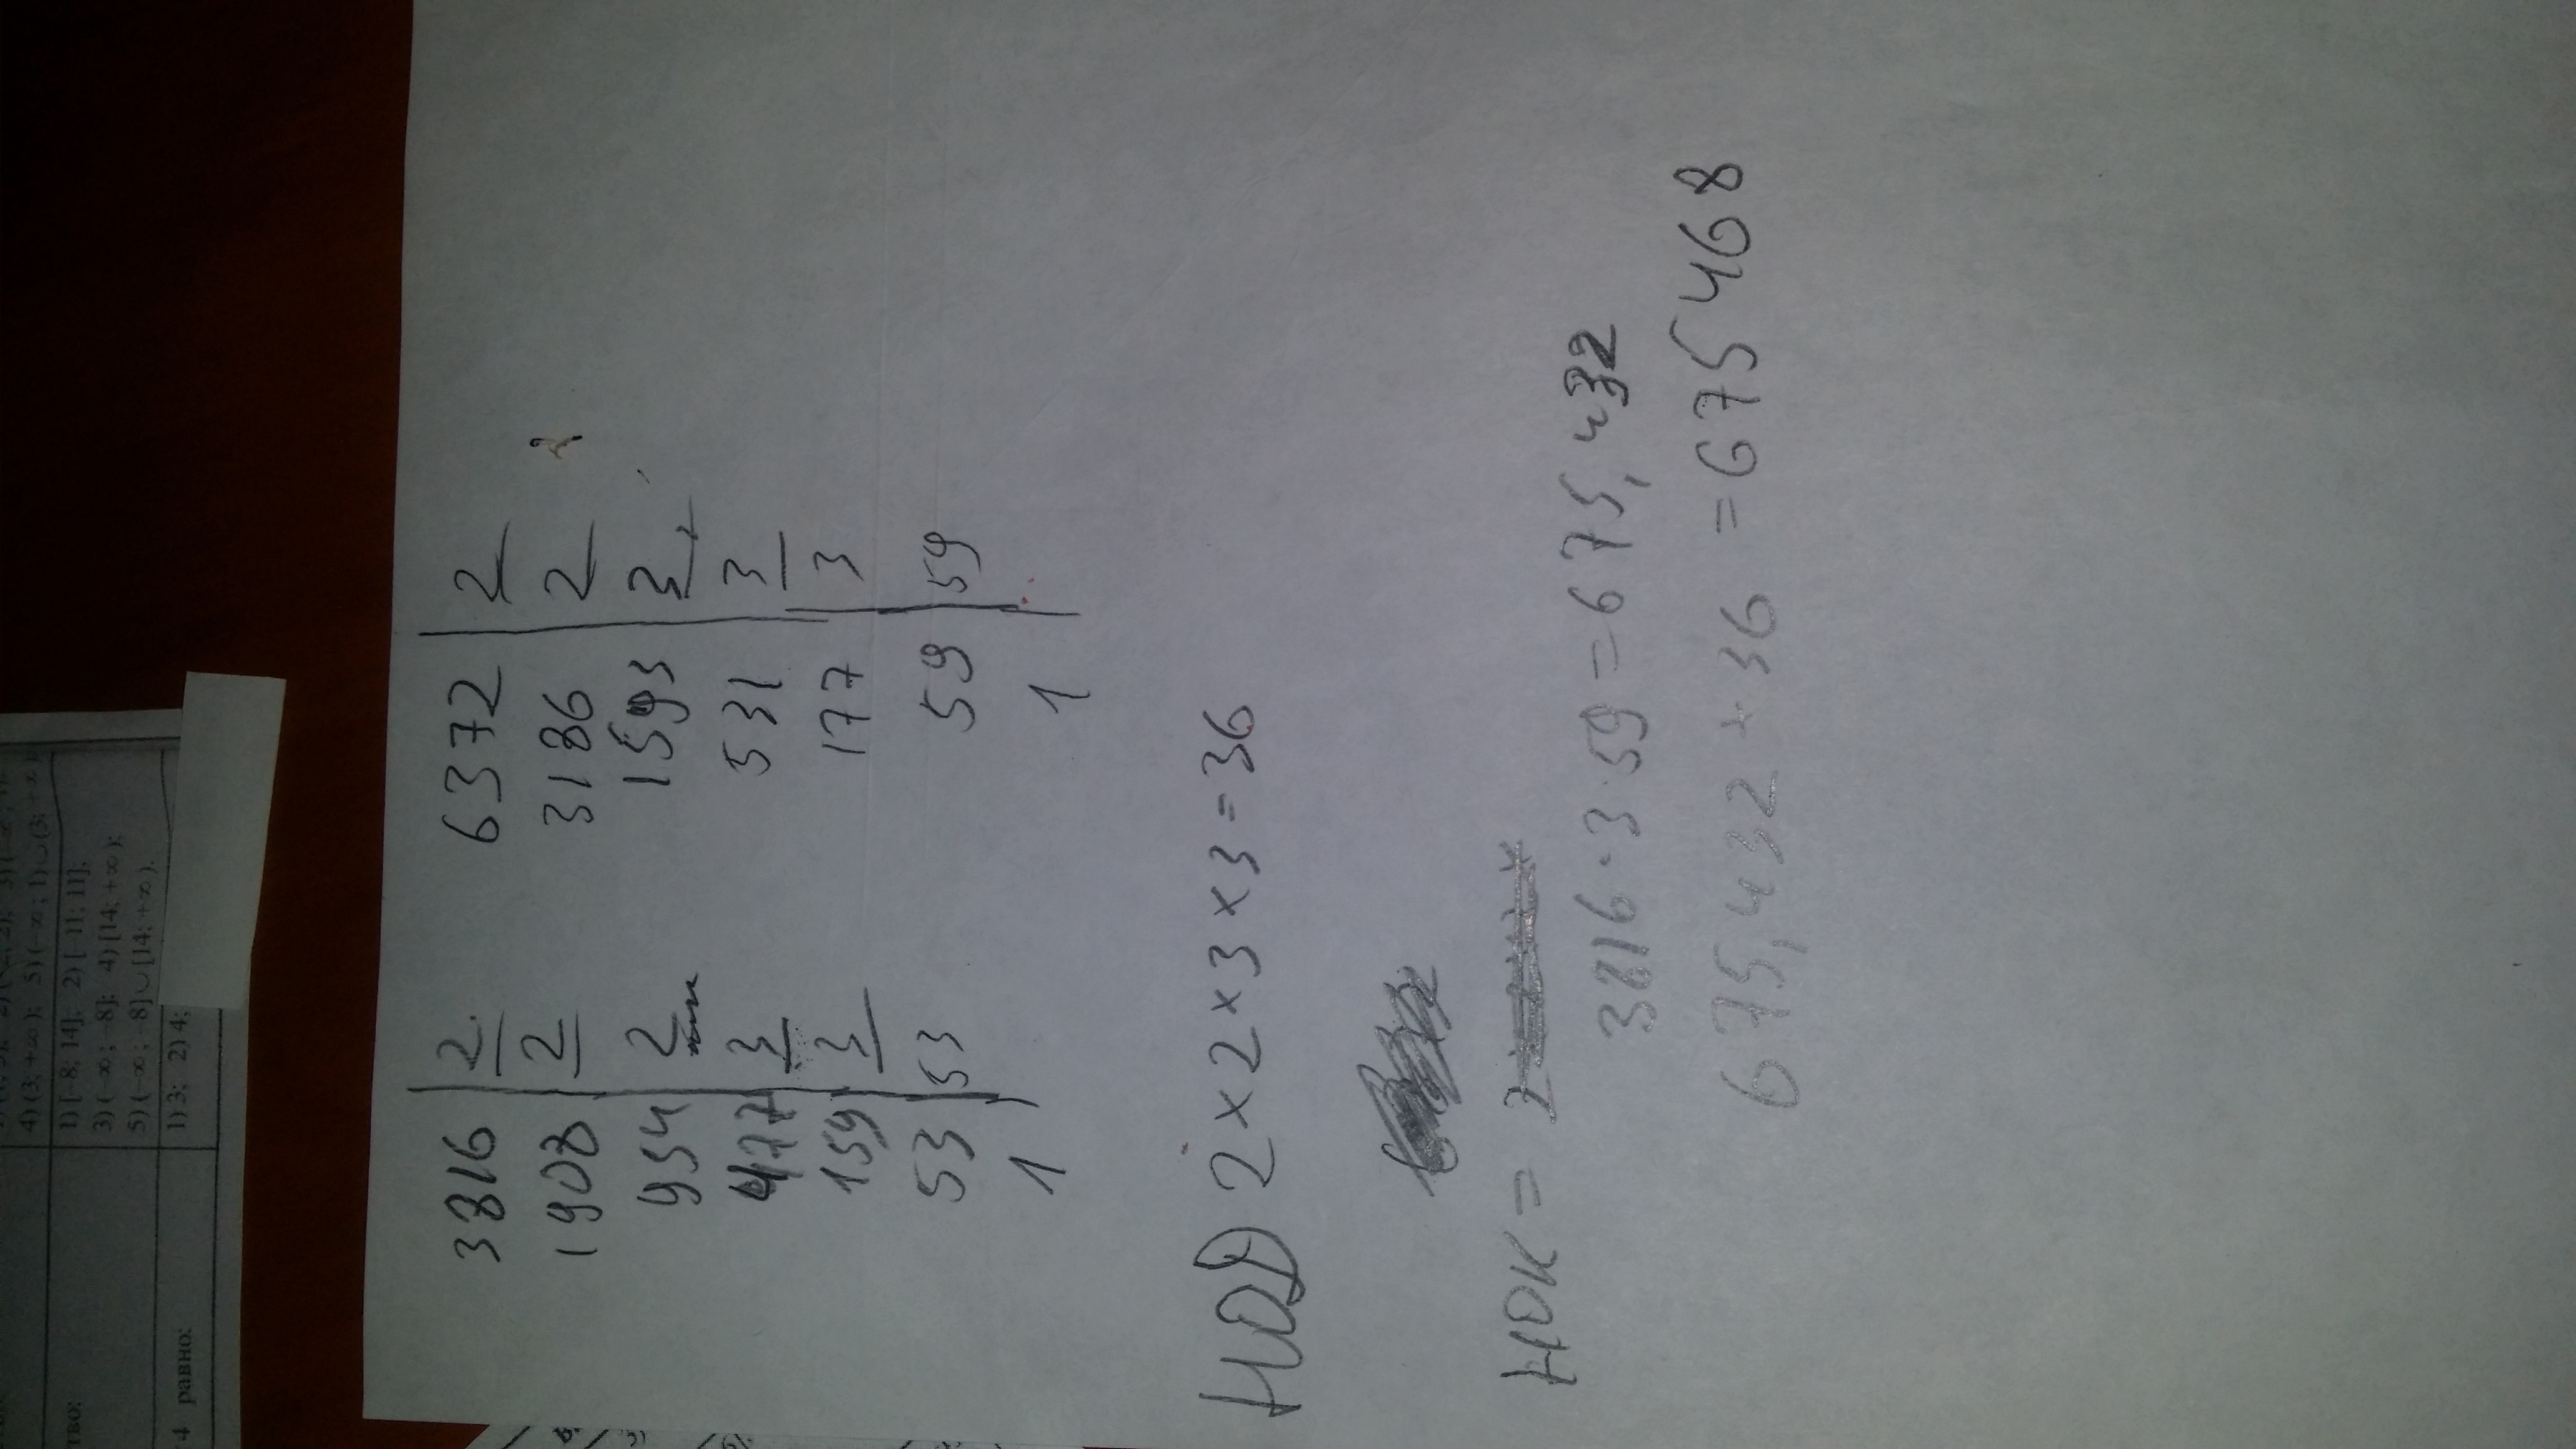 3816 | 2 6372 | 2
1908 | 2 3186 | 2
954 | 2 1593 | 3
477 | 3 531 | 3
159 | 3 177 | 3
53 | 53 59 | 59
1 1
НОД 2 × 2 × 3 × 3 = 36
НОК =
3816 · 3 · 59 = 675,432
675,432 + 36 = 675468
4) (3; +∞); 5) (−∞; 1)∪(3; +∞)
1) [−8; 14]; 2) [−11; 11];
3) (−∞; −8]; 4) [14; +∞);
5) (−∞; −8]∪[14; +∞).
тво:
4 равно: 1) 3; 2) 4;